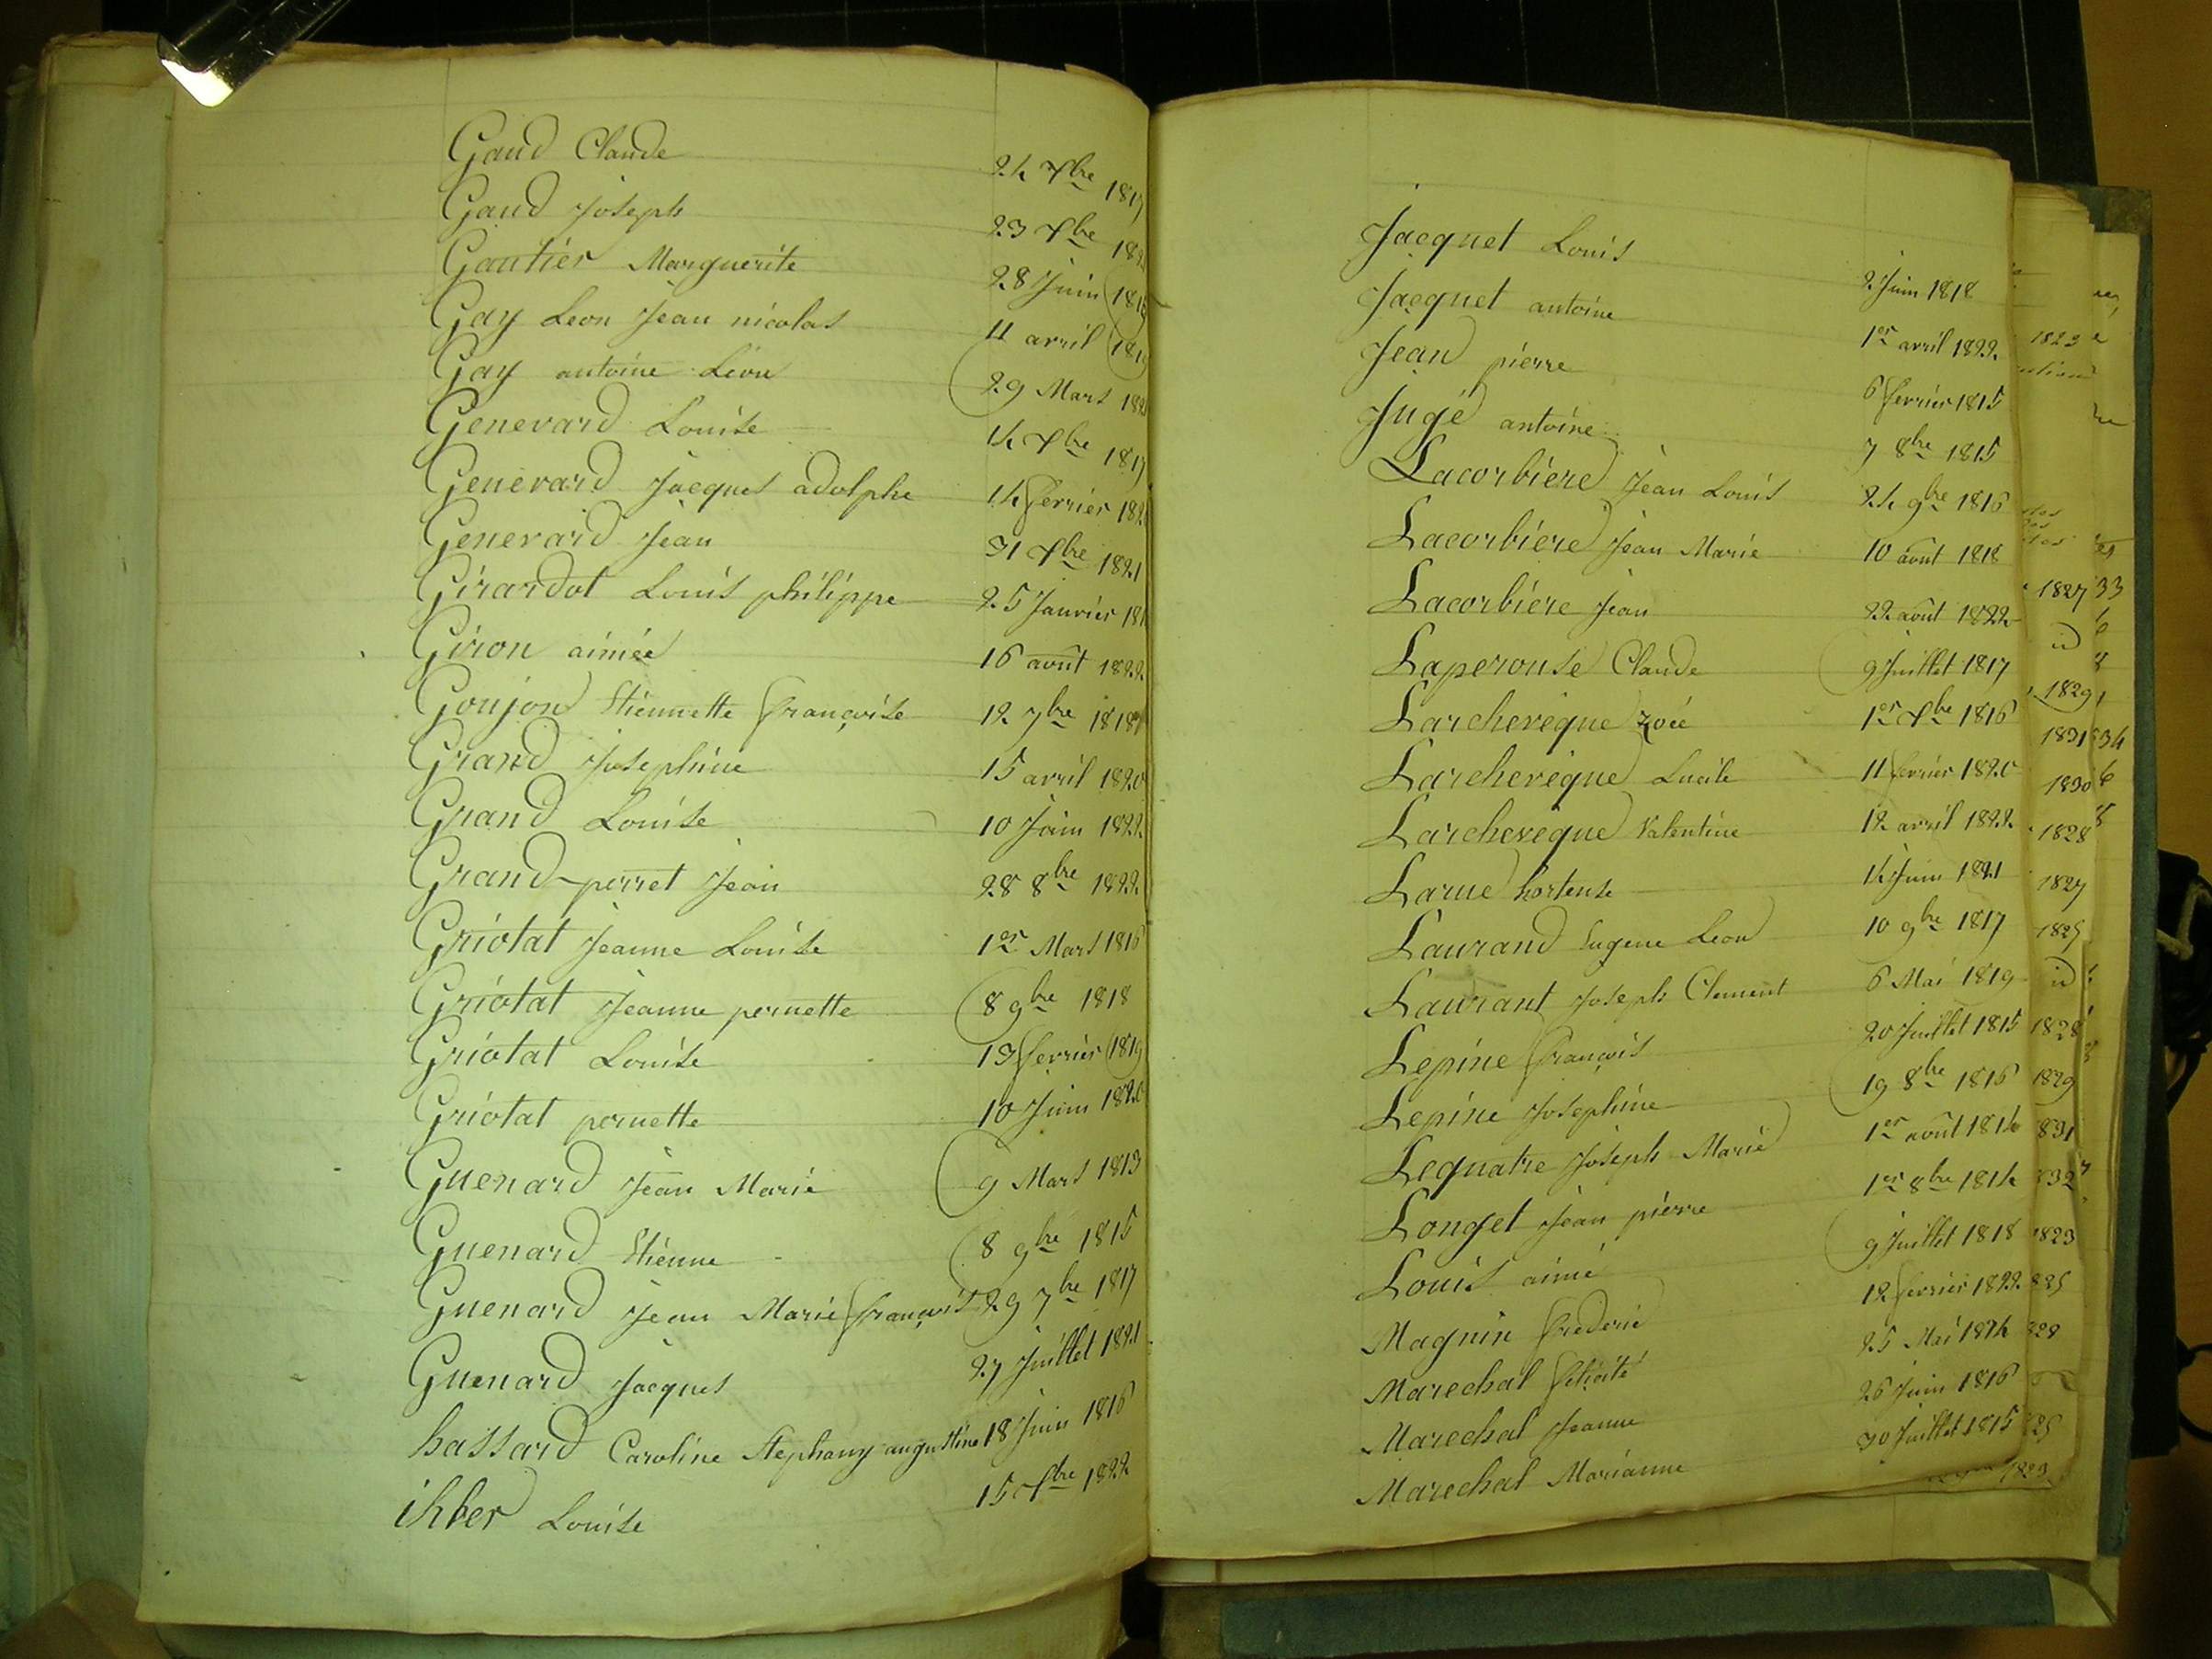 Gaud Claude 24 Xbre 1817
Gaud Joseph 23 Xbre
Gautier Marguerite 28 Juin
Gay Leon Jean nicolas 11 avril
Gay antoine Léon 29 Mars
Genevard Louise 14 Xbre 1817
Genevard Jacques adolphe 14 fevrier
Genevard Jean 31 Xbre 1821
Girardot Louis philippe 25 Janvier
Giron aimée 16 août 1822
Goujon Etiennette françoise 12 7bre 1818
Grand Josephine 15 avril 1820
Grand Louise 10 Juin 1822
Grand-perret Jean 28 8bre 1822
Griotat Jeanne Louise 1er Mars 1816
Griotat Jeanne pernette 8 9bre 1818
Griotat Louise 13 fevrier 1819
Griotat pernette 10 Juin 1820
Guenard Jean Marie 9 Mars 1813
Guenard Etienne 8 9bre 1815
Guenard Jean Marie françois 29 7bre 1817
Guenard Jacques 27 Juillet 1821
hassard Caroline Stephany augustine 18 Juin 1816
ihler Louise 15 Xbre 1822
Jacquet Louis 2 Juin 1818
Jacquet antoine 1er avril 1822
Jean pierre 6 fevrier 1815
Jugé antoine 7 8bre 1815
Lacorbière Jean Louis 24 9bre 1816
Lacorbière Jean Marie 10 août 1818
Lacorbière Jean 22 août 1822
Laperouse Claude 9 Juillet 1817
Larchevêque zoée 1er Xbre 1816
Larchevêque Lucile 11 fevrier 1820
Larchevêque Valentine 12 avril 1822
Larue hortense 14 Juin 1821
Laurand Eugene Leon 10 9bre 1817
Laurant Joseph Clement 6 Mai 1819
Lepine françois 20 Juillet 1815
Lepine Josephine 19 8bre 1816
Lequatre Joseph Marie 1er août 1814
Longet Jean pierre 1er 8bre 1814
Louis aimé 9 Juillet 1818
Magnin frederic 12 fevrier 1822
Marechal felicité 25 Mai 1814
Marechal Jeanne 26 Juin 1816
Marechal Marianne 30 Juillet 1815
1823
1827
id
1829
1831
1830
1828
1827
1825
id
1828
1829